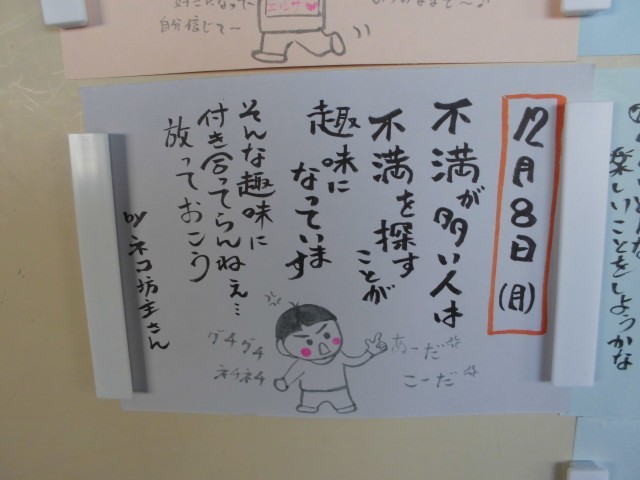 自分信じて～
エルサ♥
12月8日(月)
不満が多い人は
不満を探す
ことが
趣味に
なっています
そんな趣味に
付き合ってらんねぇ…
放っておこう
by ネコ坊主さん
グチグチ
ネチネチ
あーだ
こーだ
楽しいことをしようかな